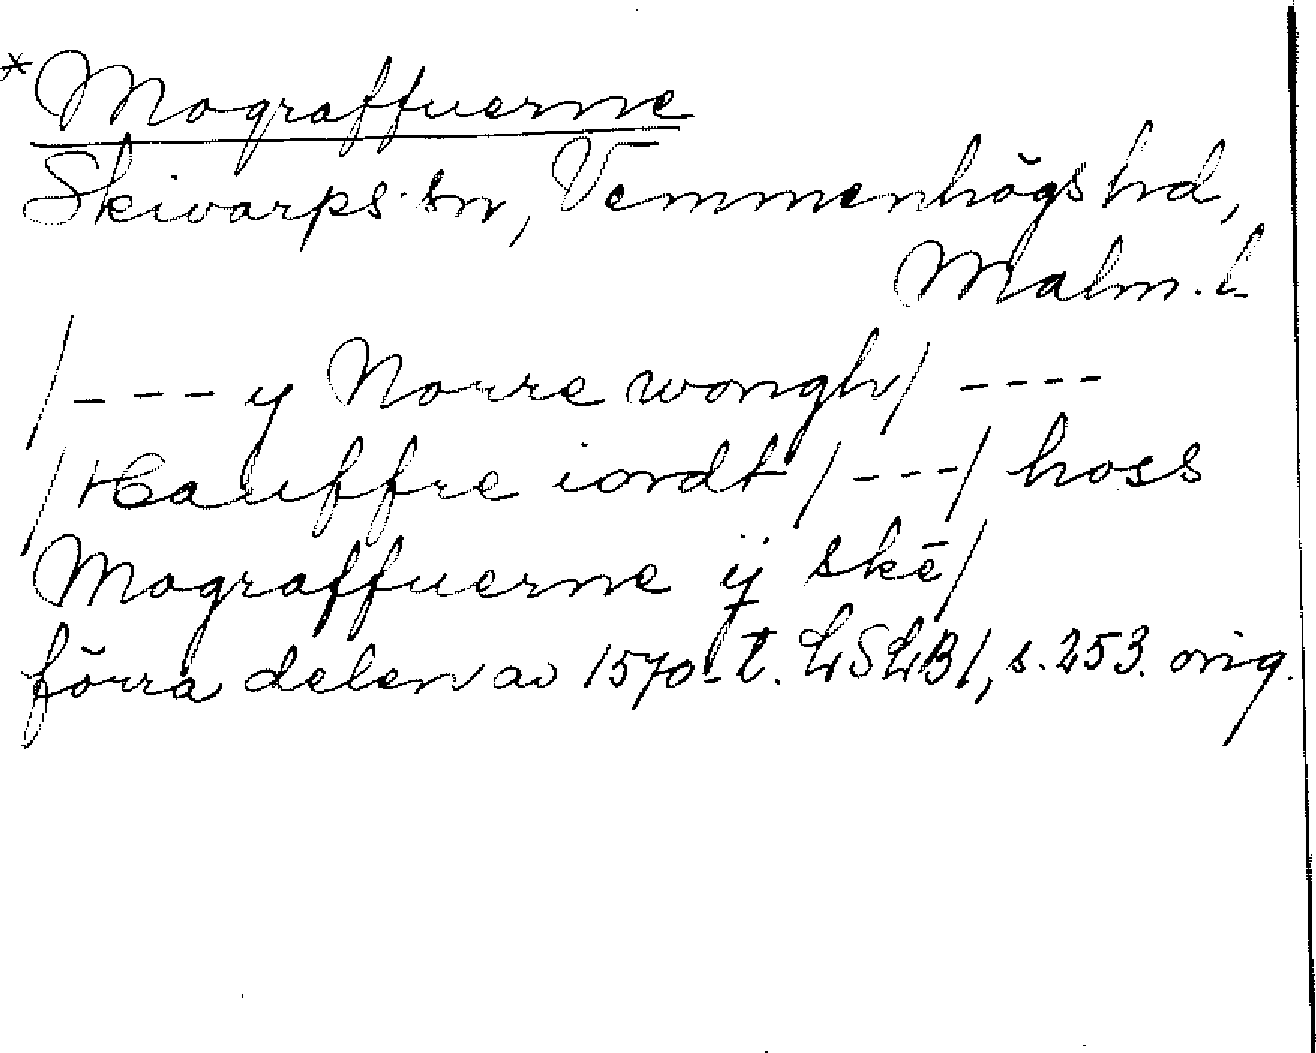 *Mograffuerne
Skivarps sn, Vemmenhögs hd,
Malm. l.
/---y Norre wongh/ ----
/Hauffre iordt/---/ hoss
Mograffuerne ÿ skē/
förra delen av 1570-t. LSLB1, s. 253. orig.